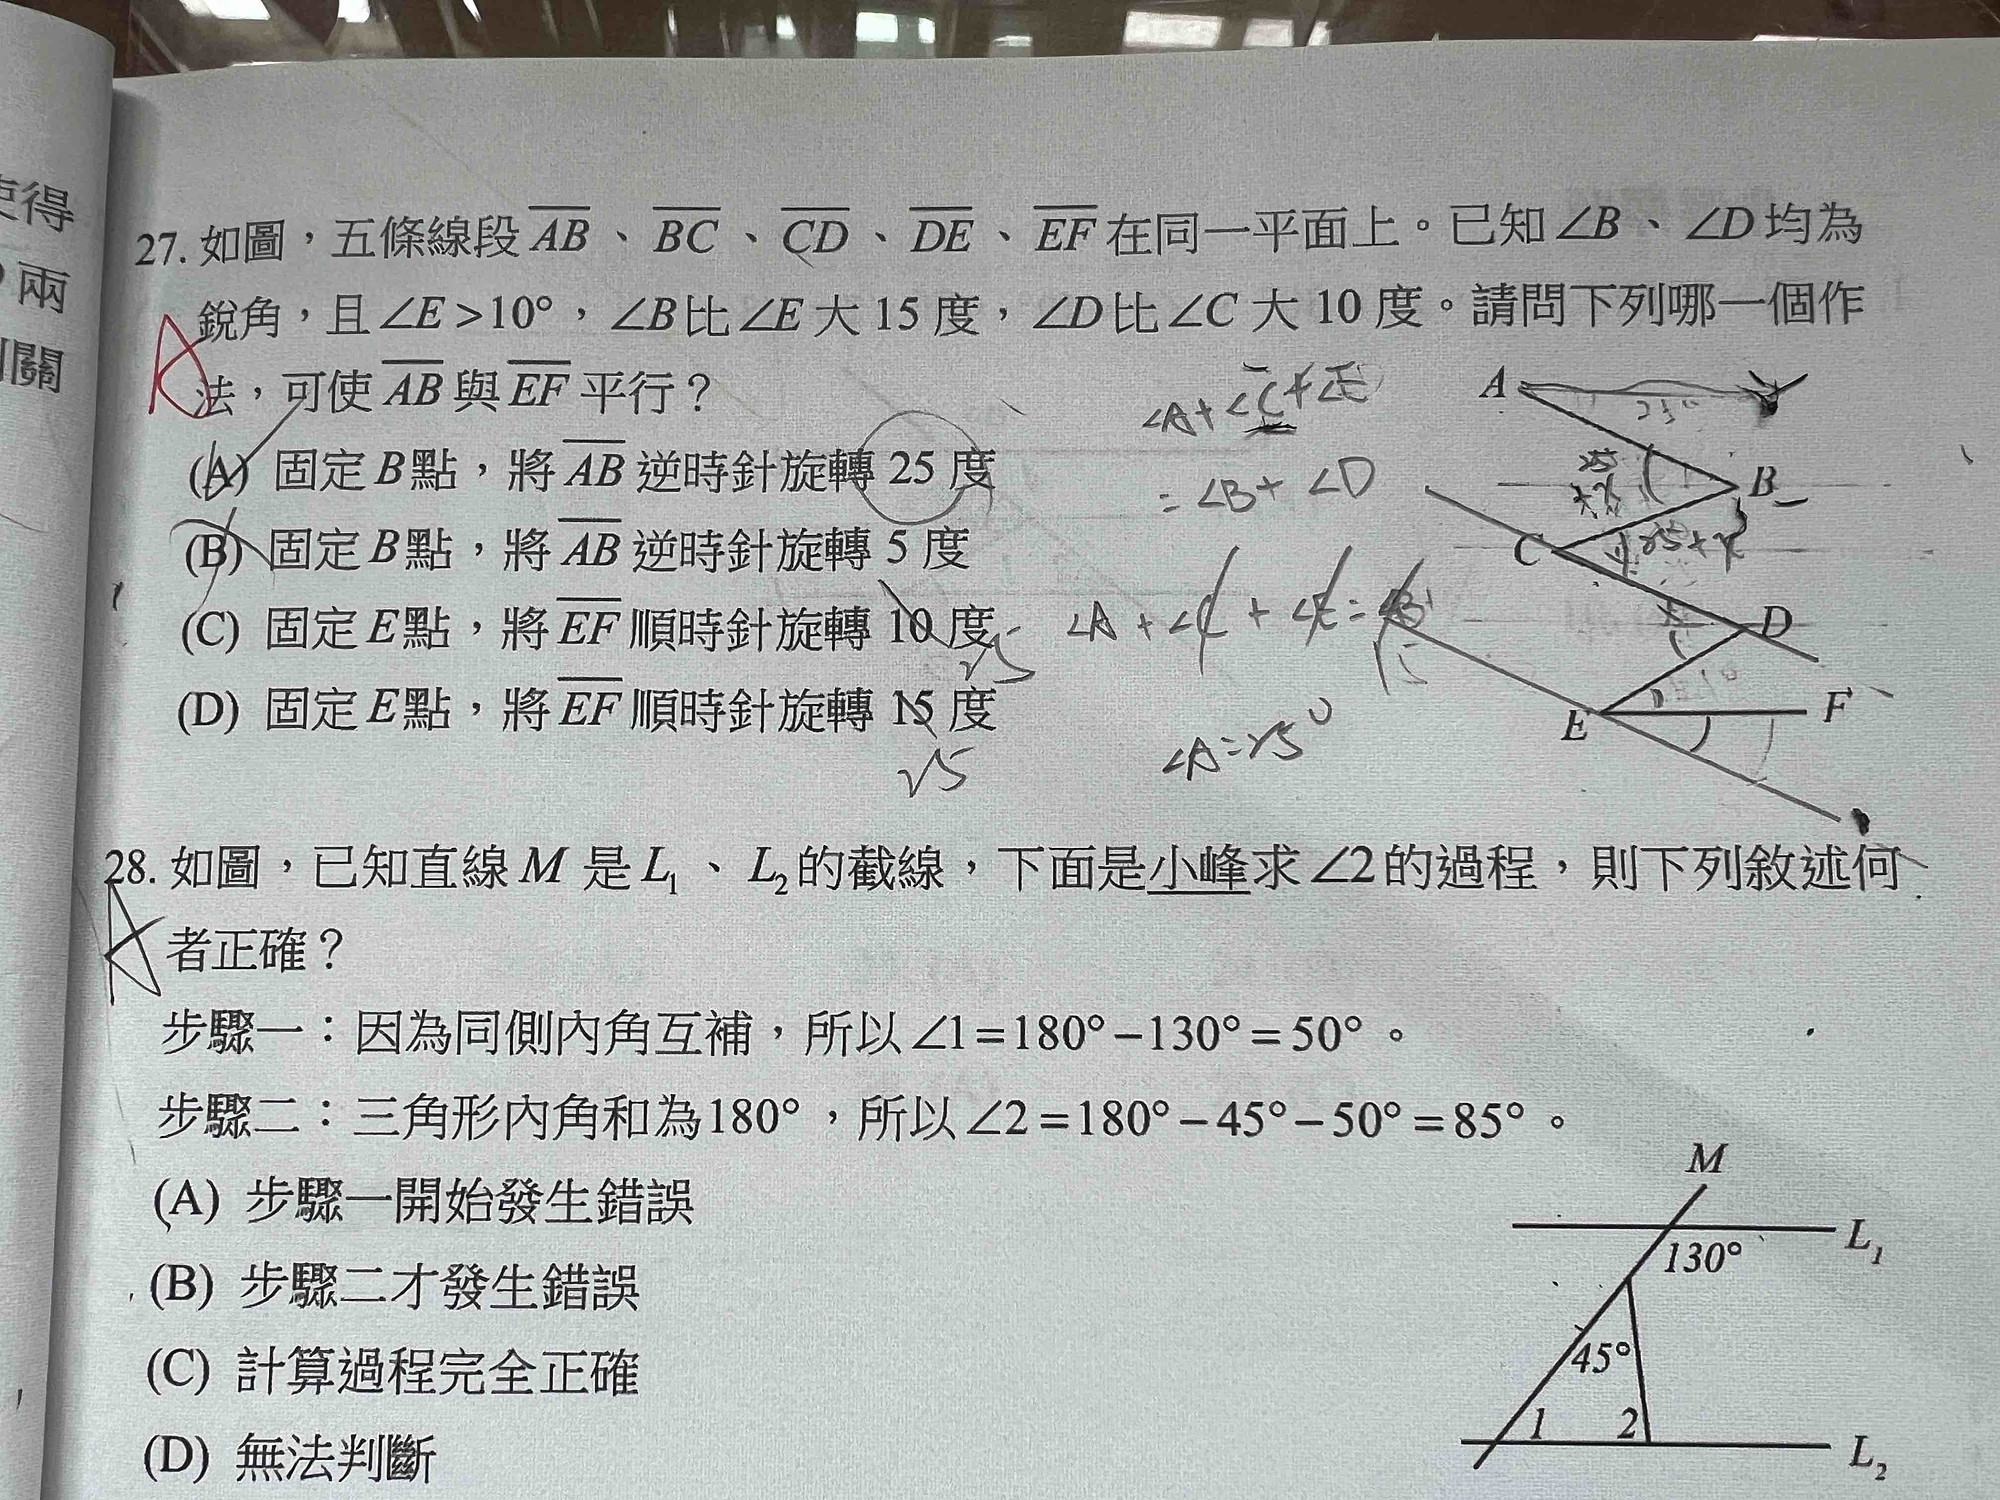 使得
兩
關
27. 如圖，五條線段 AB、BC、CD、DE、EF 在同一平面上。已知 ∠B、∠D 均為
銳角，且 ∠E > 10°，∠B 比 ∠E 大 15 度，∠D 比 ∠C 大 10 度。請問下列哪一個作
法，可使 AB 與 EF 平行？
A
(A) 固定 B 點，將 AB 逆時針旋轉 25 度
(B) 固定 B 點，將 AB 逆時針旋轉 5 度
(C) 固定 E 點，將 EF 順時針旋轉 10 度
25
(D) 固定 E 點，將 EF 順時針旋轉 15 度
25
∠A+∠C+∠E
= ∠B+∠D
∠A+∠C+∠E=
15
∠A=25°
A
25°
B
C
25+x
D
E
F
28. 如圖，已知直線 M 是 L₁、L₂ 的截線，下面是小峰求 ∠2 的過程，則下列敘述何
者正確？
A
步驟一：因為同側內角互補，所以 ∠1=180°−130°=50°。
步驟二：三角形內角和為180°，所以 ∠2=180°−45°−50°=85°。
(A) 步驟一開始發生錯誤
(B) 步驟二才發生錯誤
(C) 計算過程完全正確
(D) 無法判斷
M
L₁
130°
45°
1 2
L₂